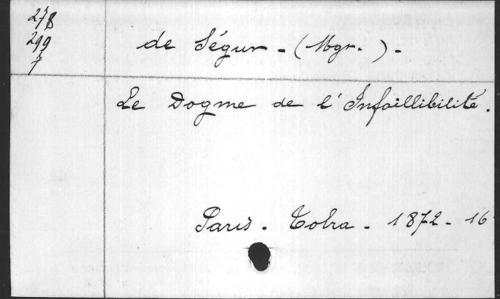 278
299
7
de Ségur - (Mgr. ) -
Le Dogme de l'Infaillibilité.
Paris - Tolra - 1872 - 16